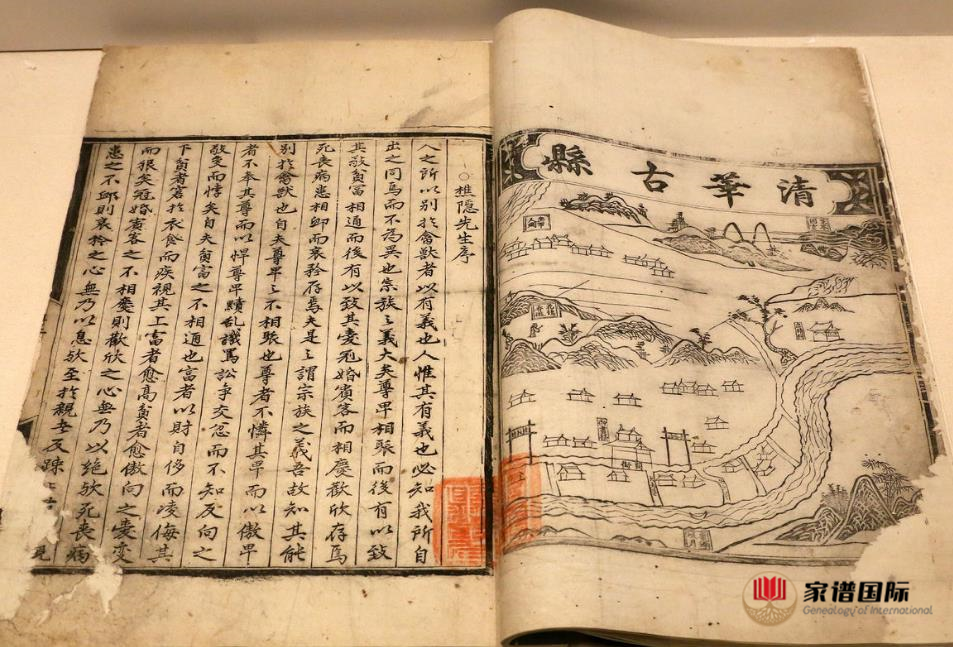 清華古縣
○樵隐先生序
人之所以别於禽獸者以有義也人惟其有義也必知我所自
出之同焉而不為異也宗族之義大矣尊卑相聨而後有以致
其敬貧富相通而後有以致其愛冠婚賓客而相慶歡欣存焉
死喪病患相卹而哀矜存焉夫是之謂宗族之義吾故知其能
别於禽獸也自夫尊卑之不相聨也尊者不憐其卑而以傲卑
者不奉其尊而以悍尊卑瀆乱譏罵訟爭交忽而不知反向之
敬变而悖矣自夫貧富之不相通也富者以財自侈而凌侮其
下貧者窘於衣食而疾視其上富者愈高貧者愈傲向之愛变
而狠矣冠婚賓客之不相慶則歡欣之心無乃以絶欤死喪病
患之不卹則哀矜之心無乃以息欤至於親者反疎
家谱国际
Genealogy of International